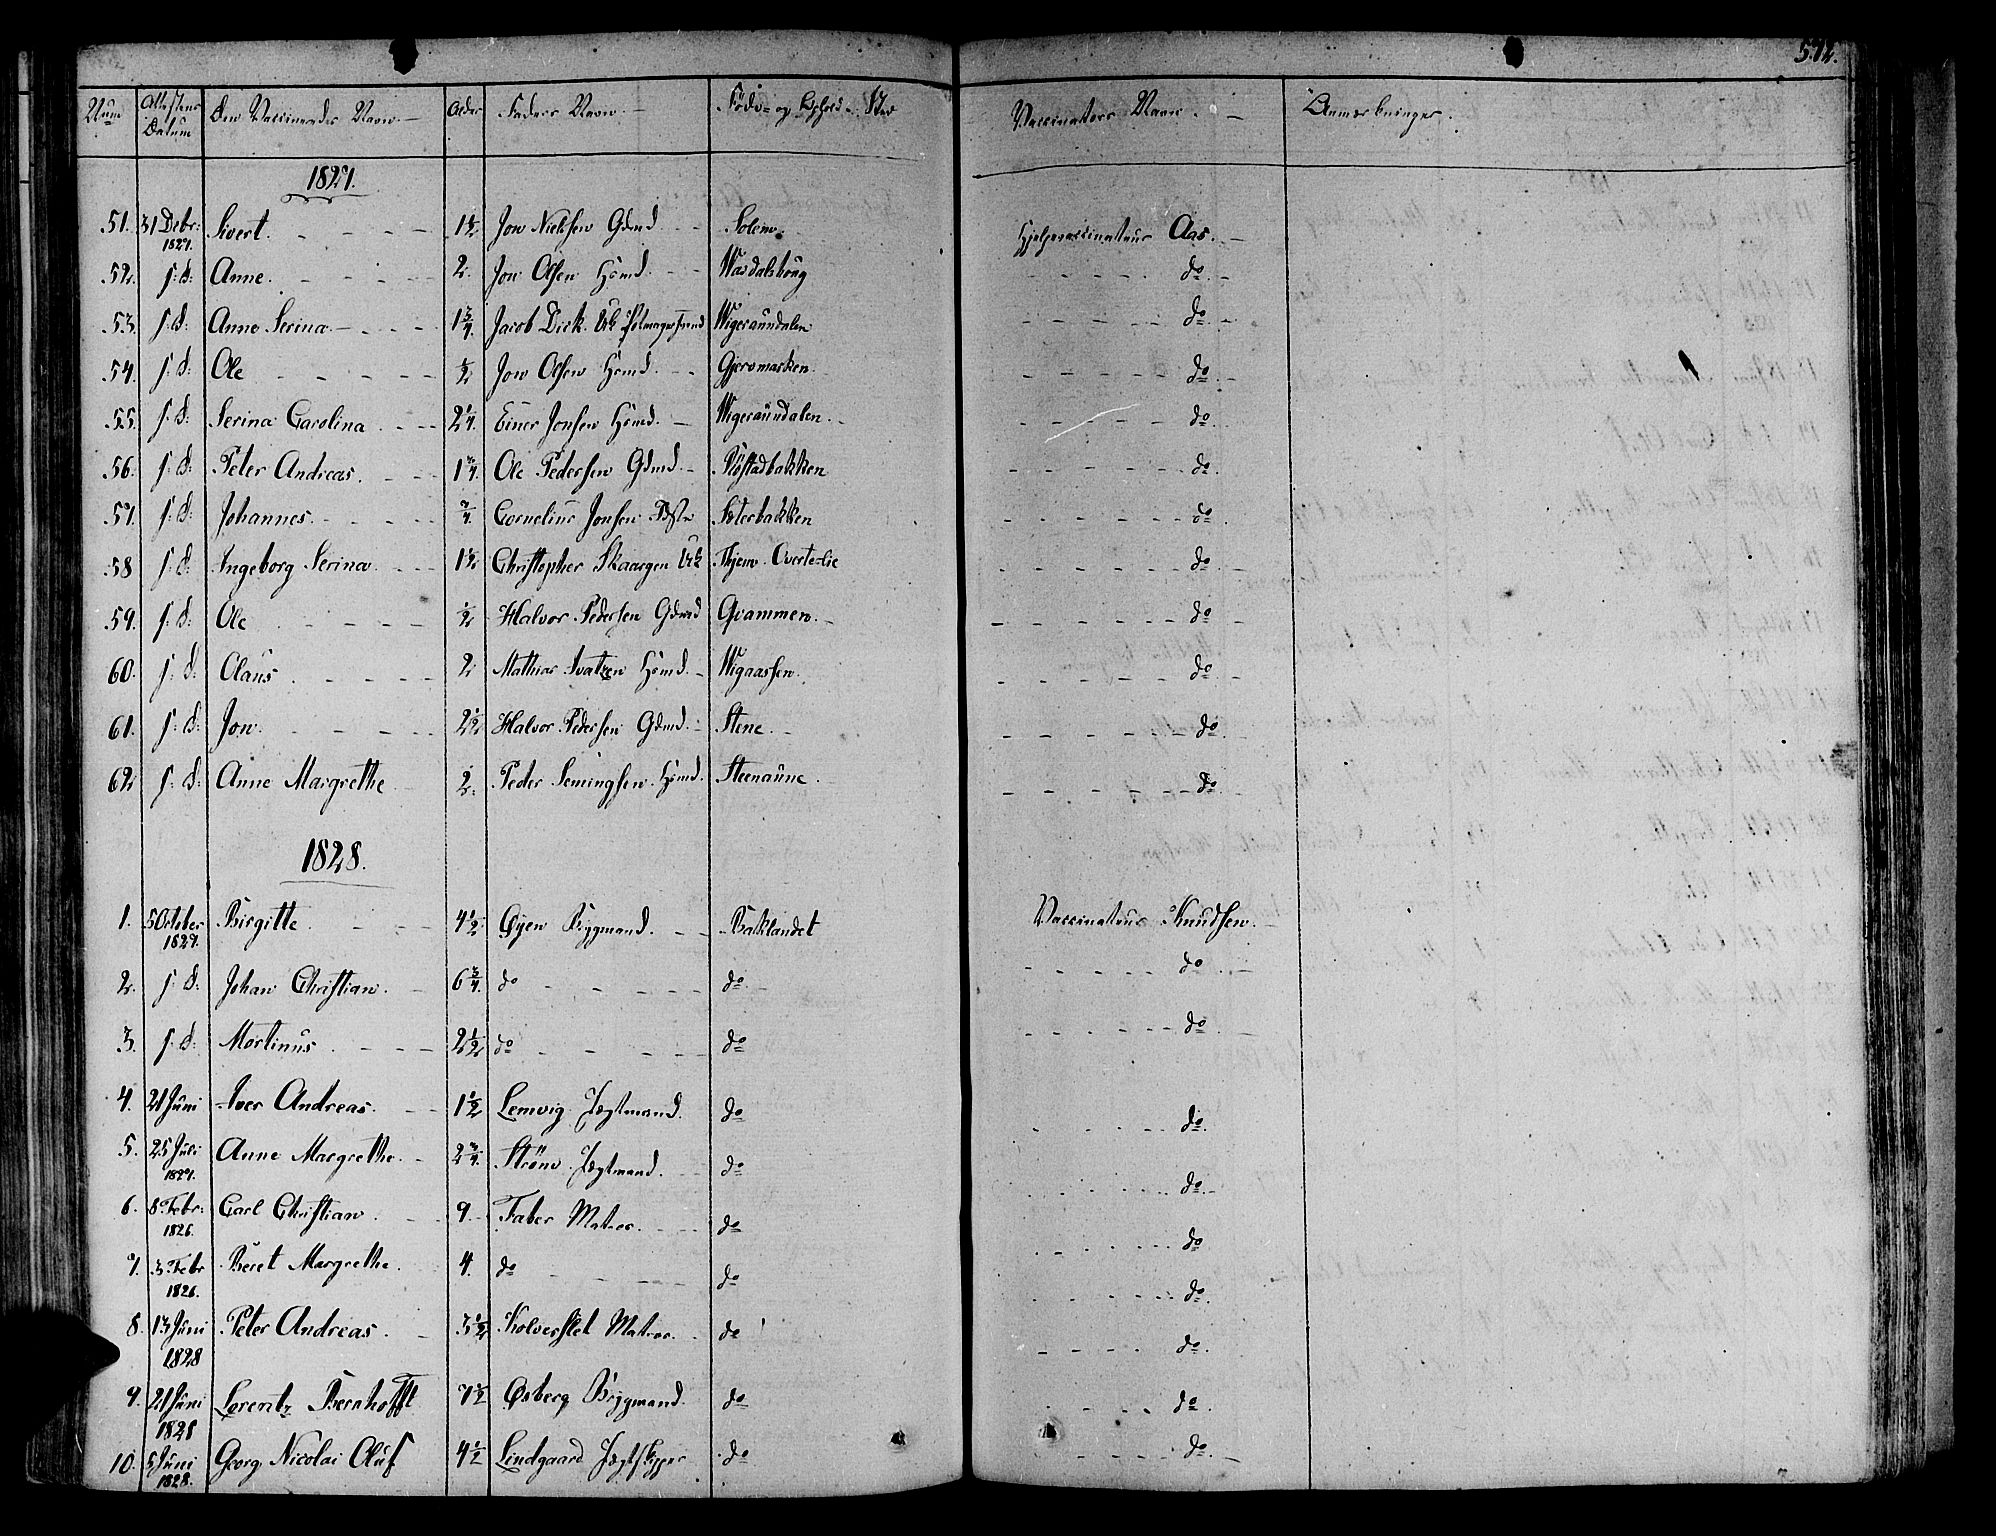 572.
Num Attestens Datum Den Vaccineredes Navn Alder Faders Navn Føde- og Opholds Sted Vaccinateurs Navn Anmærkninger.
1827.
51. 31 Decbr: 1827. Sivert 1½ Jon Nielsen Gdmd Solem Hjelpevaccinateur Aas.
52. s: d: Anne 2. Jon Olsen Hsmd. do
53. s: d: Anne Serina 1¾ Jacob Dick. Wigeraundalen do
54. s: d: Ole ½ Jon Olsen Hsmd. Gjervmarken do
55. s: d: Serina Carolina 2¼ Einer Jonsen Hsmd. Wigeraundalen. do
56. s: d: Peter Andreas. 1¾ Ole Pedersen Gdmd. do
57. s: d: Johannes. ¾ Cornelius Jonsen do
58 s: d: Ingeborg Serina 1½ Christopher Skaargen do
59. s: d: Ole ½ Halvor Pedersen Gdmd Qvammen. do
60. s: d: Claus 2 Mathias Hsmd. Wigaassen do
61. s: d: Jon 2½ Halvor Pedersen Gdmd. Stene do
62 s: d: Anne Margrethe 2. Peder Semingsen Hsmd. Steenaune. do
1828.
1. 5 October 1827. Birgitte 4½ Øyen Bygmand. Baklandet Vaccinateur Knudsen.
2. s: d: Johan Christian. 6¾ do do do
3. s: d: Martinus 2½ do do do
4. 21 Juni Iver Andreas. 1½ Lemvig Jægtmand. do do
5. 25 Juli 1827. Anne Margrethe. 2¾ Strøm Jægtmand. do do
6. 8 Febr: 1826. Carl Christian 9 Faber Matros. do do
7. 3 Febr 1826. Beret Margrethe 4. do do do
8. 13 Juni 1828 Peter Andreas. 3½ Kolverslet Matros. do do
9. 21 Juni 1828 Lorentz Bernhofft 7½ Øsberg Bygmand. do do
10. 5 Juni 1828. Georg Nicolai Oluf 4½ Lindgaard Jægtskipper do do